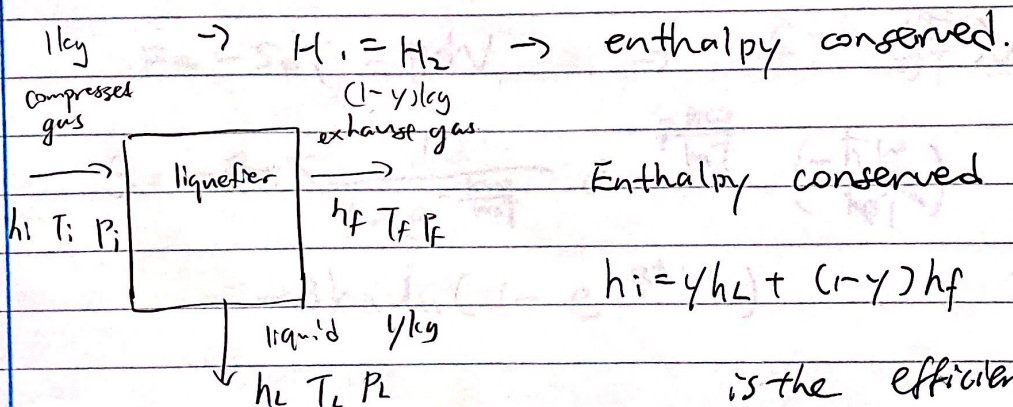 1kg → H₁ = H₂ → enthalpy conserved.
compresset gas
(1-y)kg
exhause gas
liquefier
Enthalpy conserved
hi Ti Pi
hf Tf Pf
hi = yhL + (1-y)hf
liquid ykg
hL TL PL
is the efficien